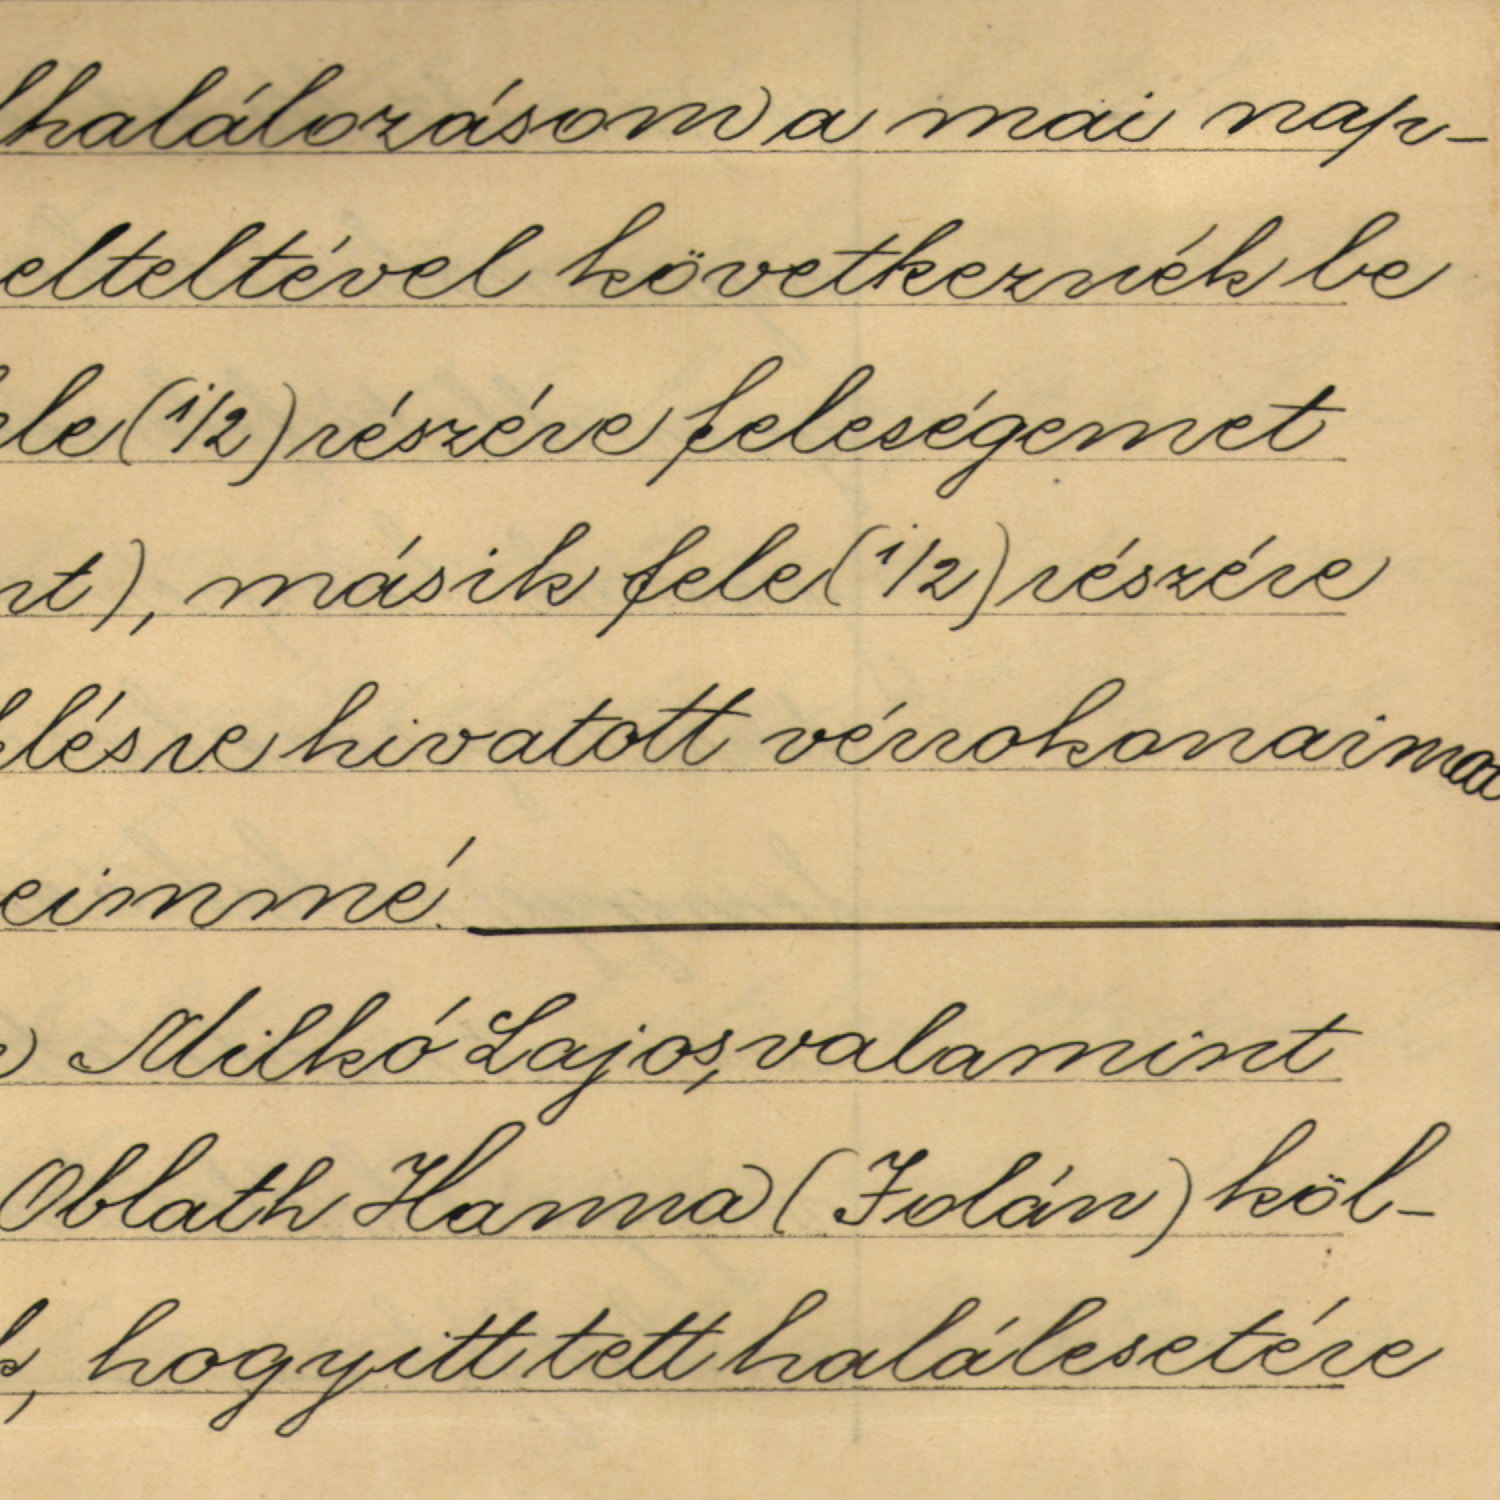 lhalálozásom a mai nap-
elteltével következnék be
ele (1/2) részére feleségemet
nt), másik fele (1/2) részére
lésre hivatott vérrokonaimat
eimmé.
Milkó Lajos, valamint
Oblath Hanna (Jolán) köl-
k, hogy itt tett halálesetére